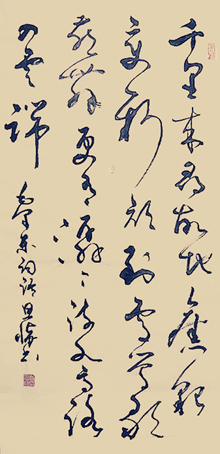 千里来寻故地舊貌
变新颜到处莺歌
燕舞更有潺潺流水高路
入雲端
毛泽东词
书